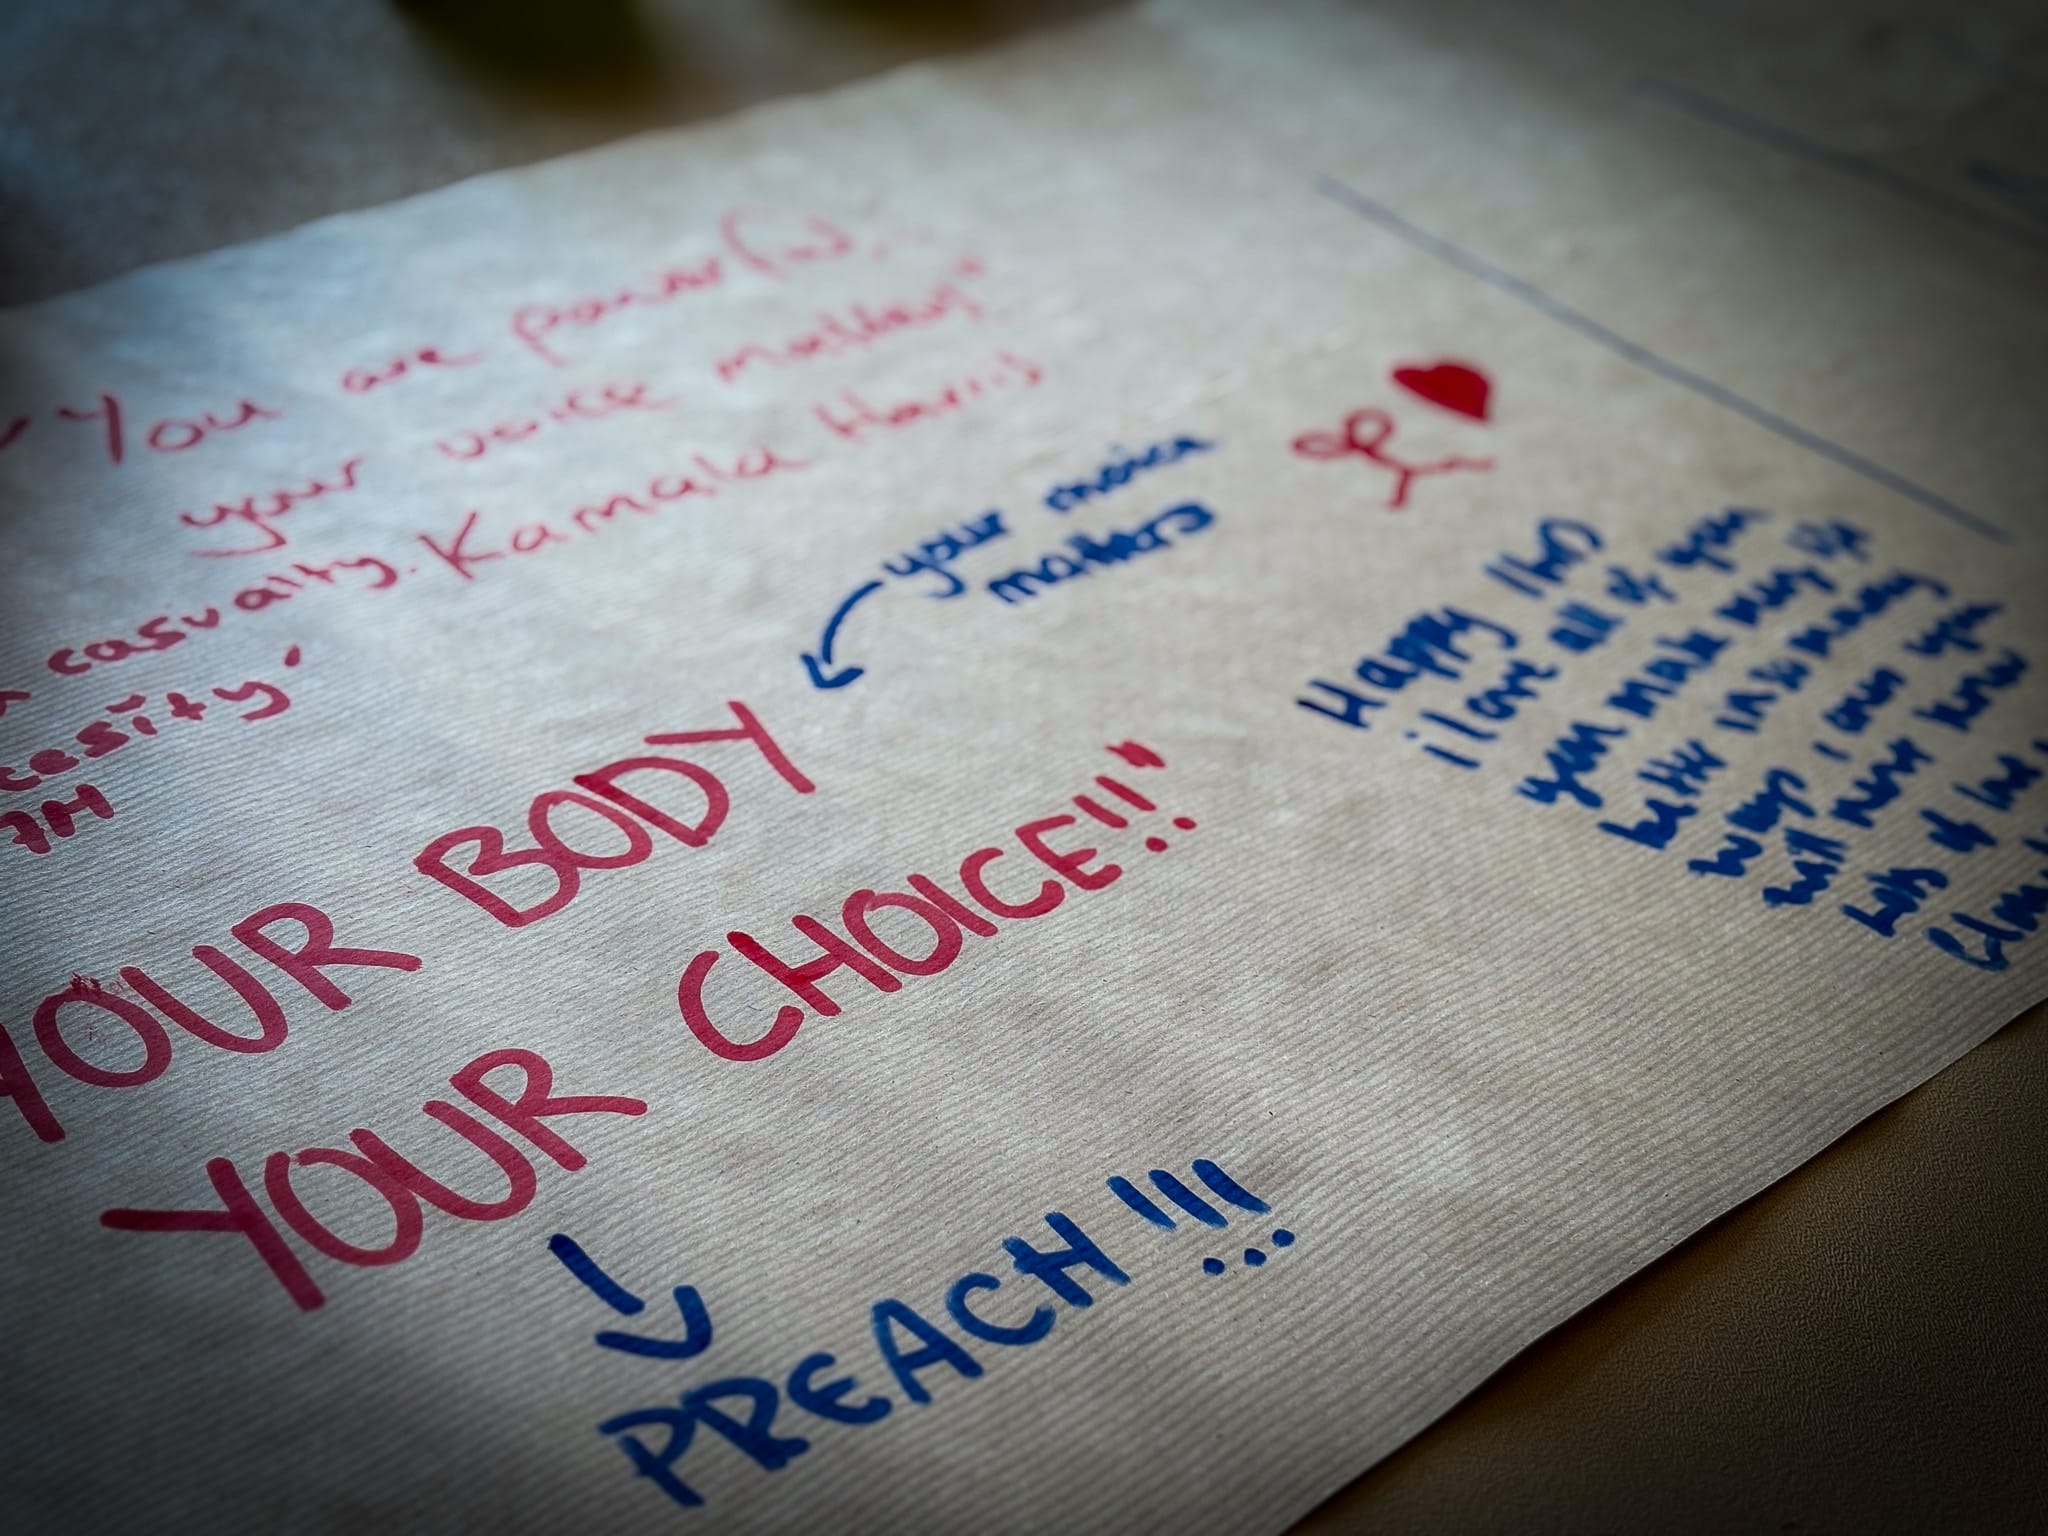 You are powerful...
your voice matters"
Kamala Harris
casualty.
cesity'
7H
your choice
matters
YOUR BODY
YOUR CHOICE!!"
PREACH!!!
Happy IWD
i love all of you
you make my life
better in so many
ways I can you
will never know
lots of love